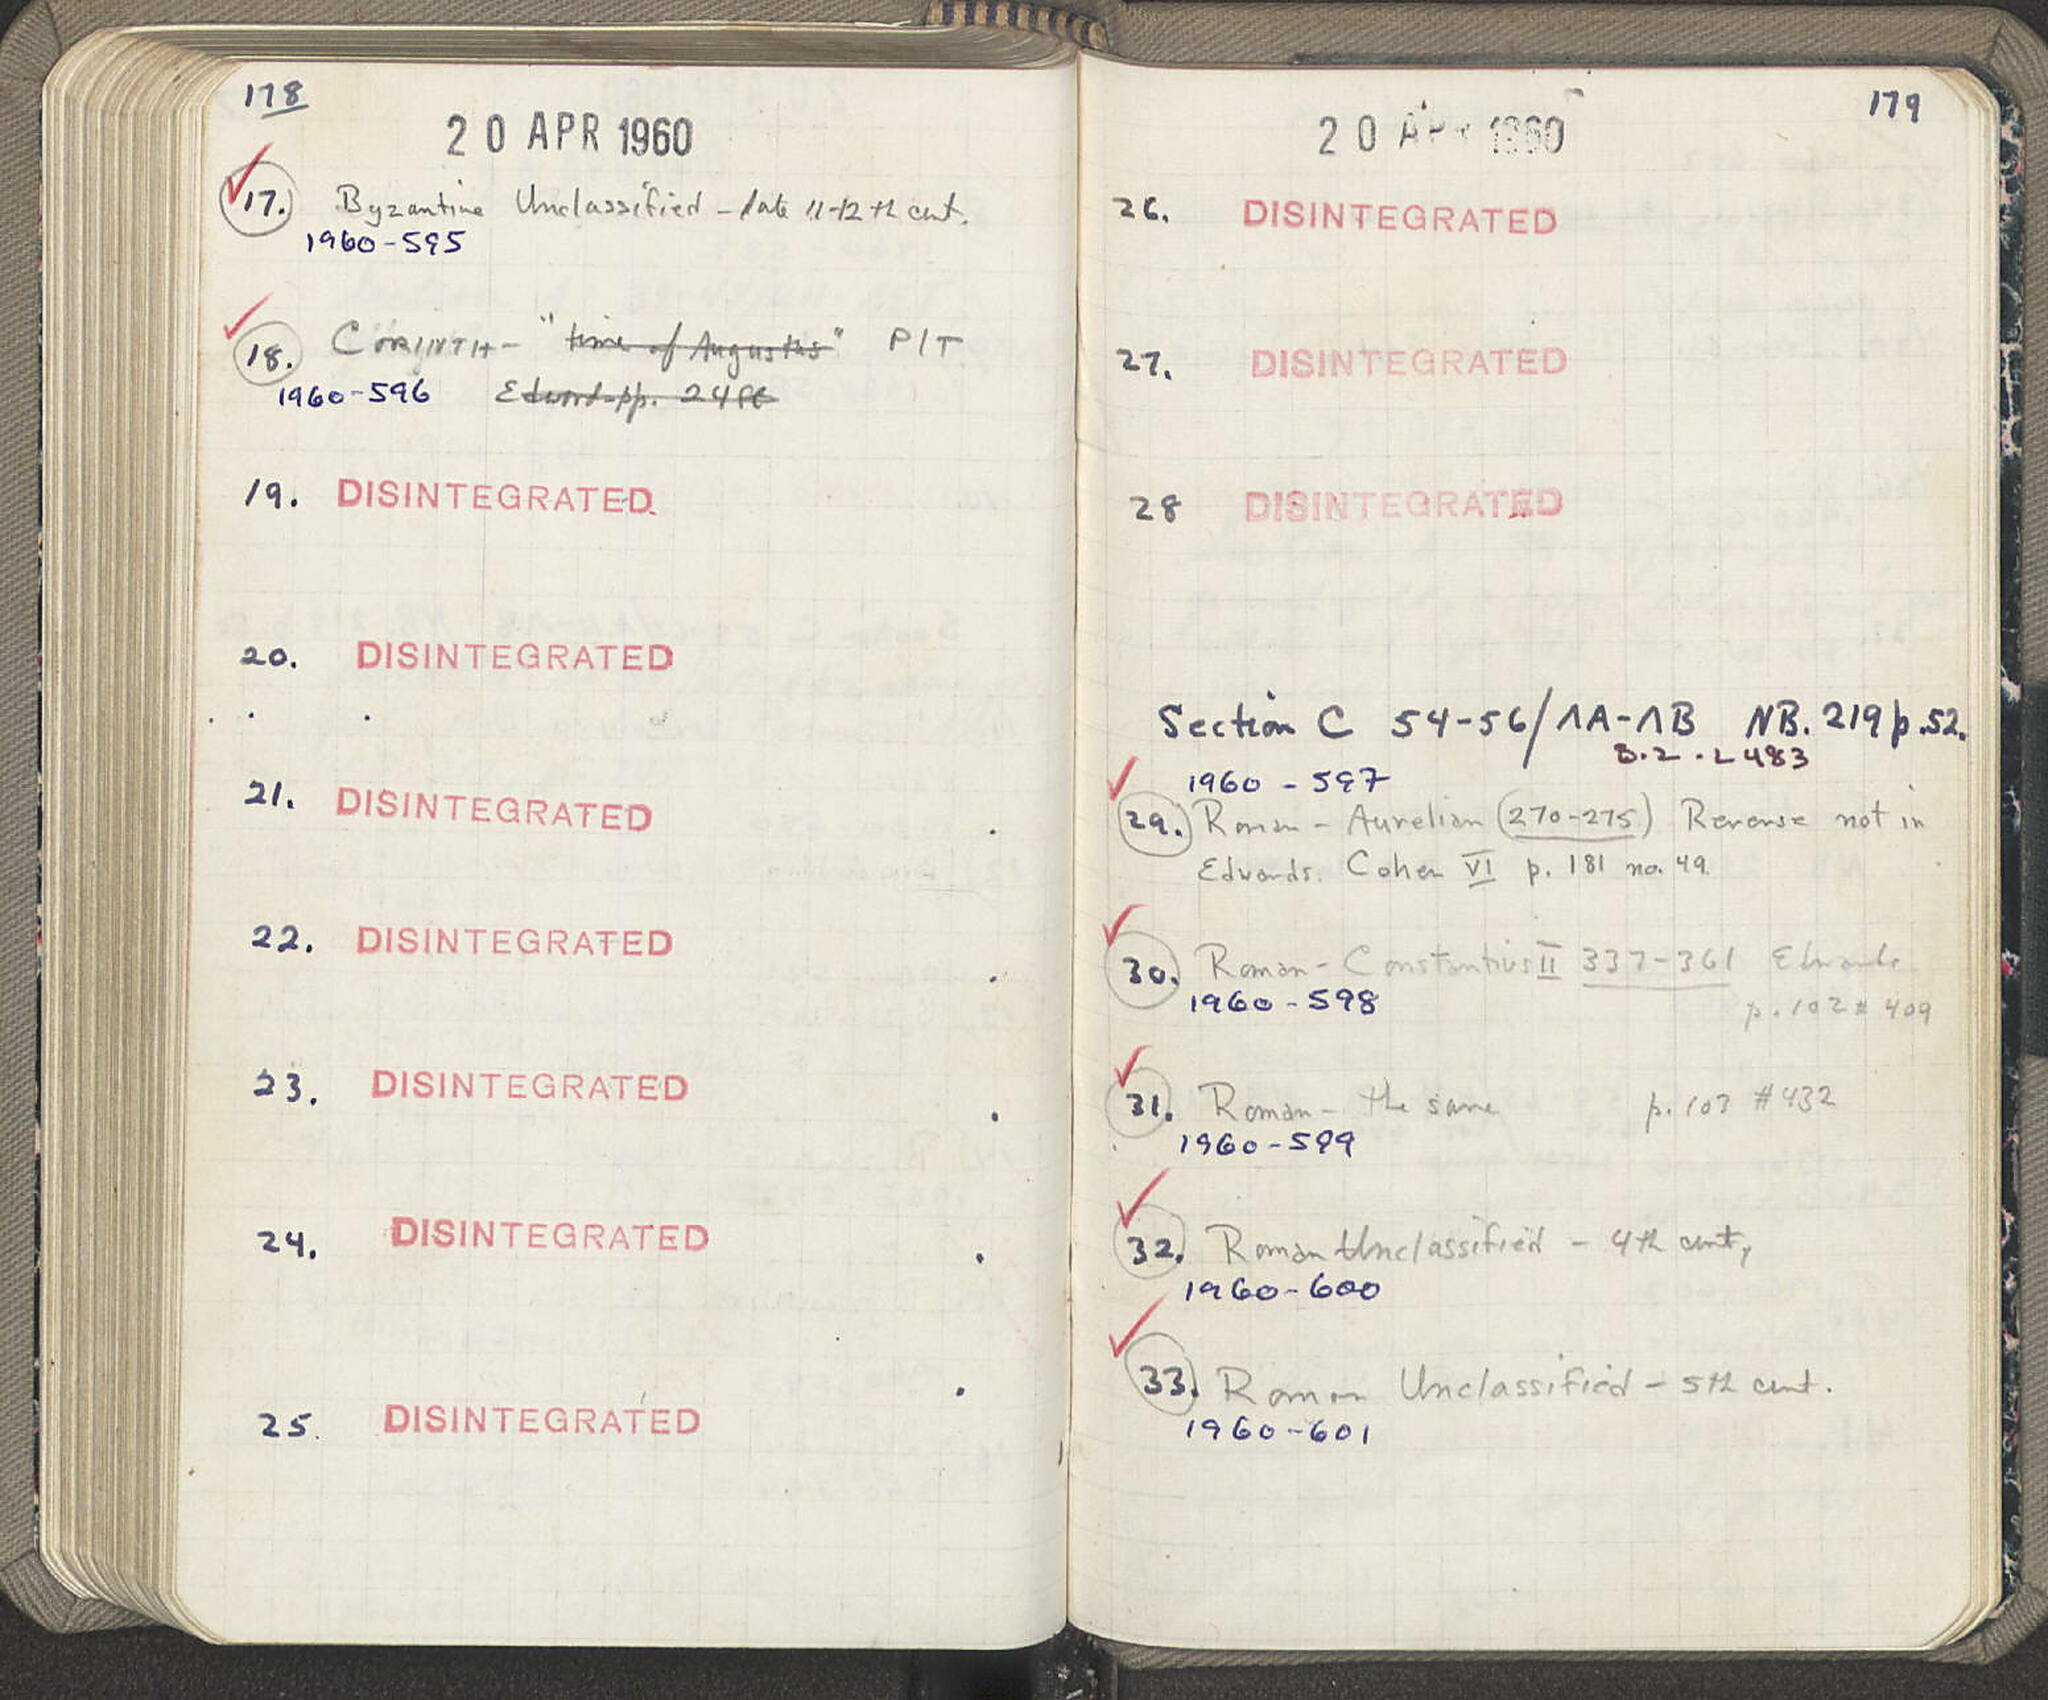 178
20 APR 1960
17. Byzantine Unclassified - late 11-12th cent.
1960-595
18. CORINTH - "time of Augustus" P/T
1960-596 Edward pp. 24
19. DISINTEGRATED
20. DISINTEGRATED
21. DISINTEGRATED
22. DISINTEGRATED
23. DISINTEGRATED
24. DISINTEGRATED
25. DISINTEGRATED
179
20 APR 1960
26. DISINTEGRATED
27. DISINTEGRATED
28 DISINTEGRATED
Section C 54-56/ΛA-ΛB NB. 219 p.52.
1960-597
29. Roman - Aurelian (270-275) Reverse not in
Edwards. Cohen VI p. 181 no. 49.
30. Roman - Constantius II 337-361 Edwards
1960-598 p. 102 # 409
31. Roman - the same p. 103 #432
1960-599
32. Roman Unclassified - 4th cent,
1960-600
33. Roman Unclassified - 5th cent.
1960-601